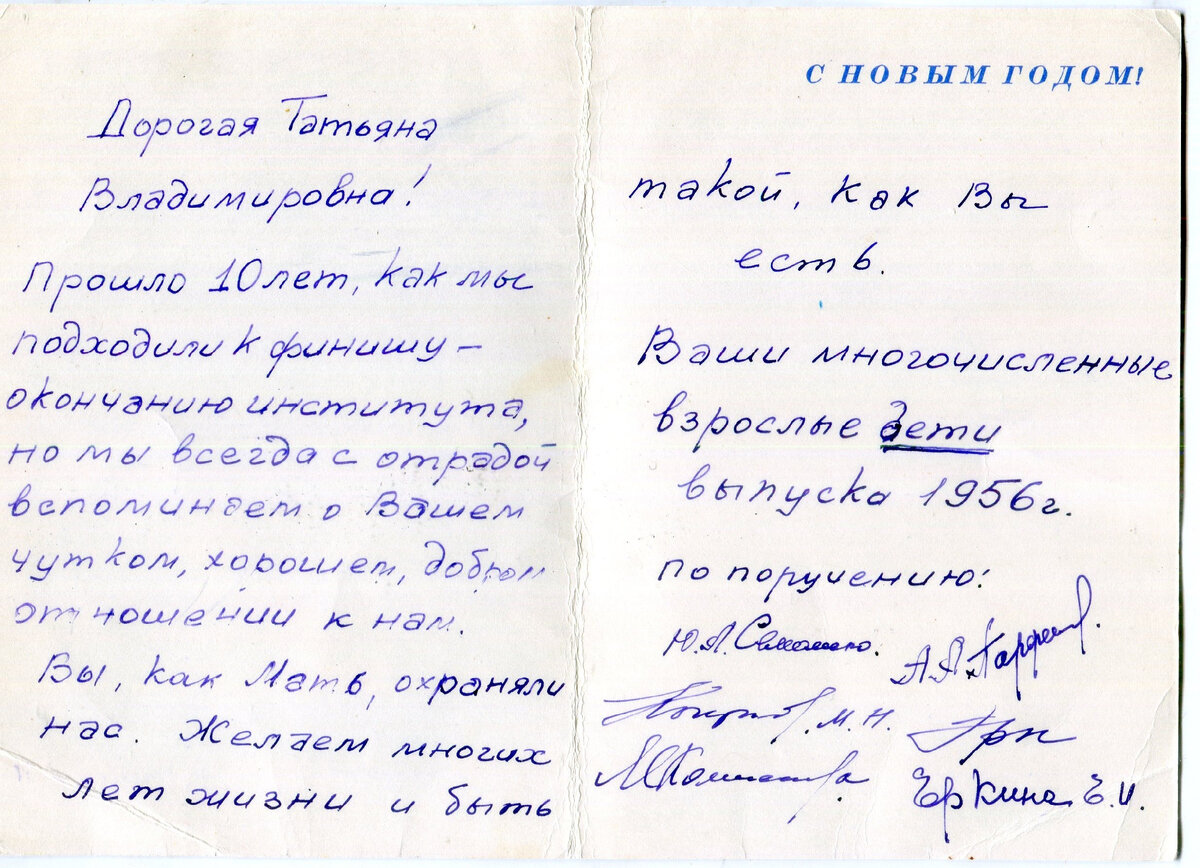 Дорогая Татьяна
Владимировна!
Прошло 10 лет, как мы
подходили к финишу –
окончанию института,
но мы всегда с отрадой
вспоминаем о Вашем
чутком, хорошем, добром
отношении к нам.
Вы, как Мать, охраняли
нас. Желаем многих
лет жизни и быть
С НОВЫМ ГОДОМ!
такой, как Вы
есть.
Ваши многочисленные
взрослые дети
выпуска 1956г.
по поручению:
Ю.А.
А.Я.
М.Н.
Еркина Е.И.